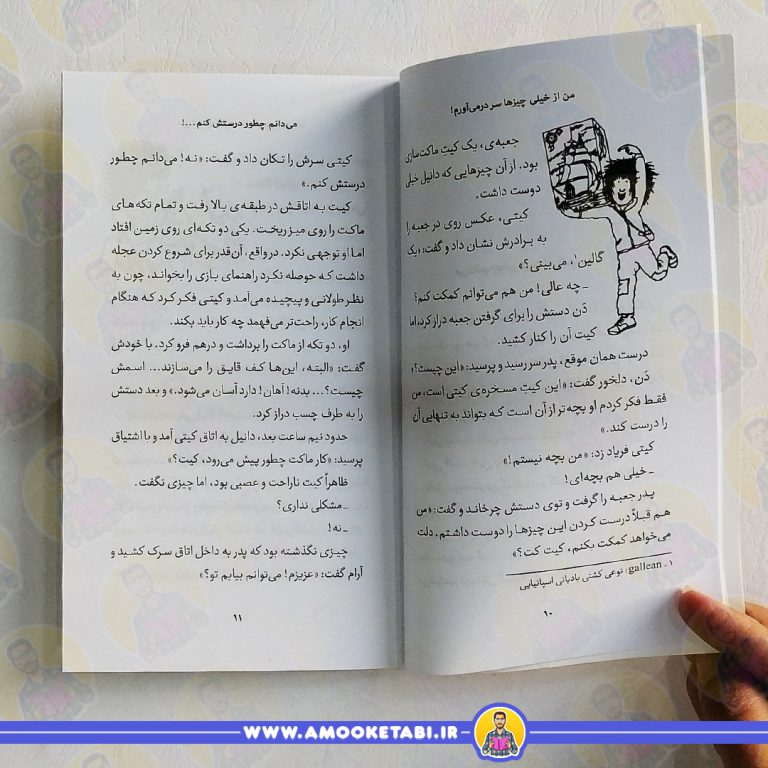 من از خیلی چیزها سر درمی‌آورم!
جعبه‌ی، یک کیتِ ماکت‌سازی
بود. از آن چیزهایی که دانیل خیلی
دوست داشت.
کیتی، عکس روی جعبه را
به برادرش نشان داد و گفت: «یک
گالین۱، می‌بینی؟»
ـ چه عالی! من هم می‌توانم کمکت کنم؟
دَن دستش را برای گرفتن جعبه دراز کرد، اما
کیت آن را کنار کشید.
درست همان موقع، پدر سر رسید و پرسید: «این چیست؟»
دَن، دلخور گفت: «این کیتِ مسخره‌ی کیتی است، من
فقط فکر کردم او بچه‌تر از آن است که بتواند به تنهایی آن
را درست کند.»
کیتی فریاد زد: «من بچه نیستم!»
ـ خیلی هم بچه‌ای!
پدر جعبه را گرفت و توی دستش چرخاند و گفت: «من
هم قبلاً درست کردن این چیزها را دوست داشتم. دلت
می‌خواهد کمکت بکنم، کیت کت؟»
۱. gallean: نوعی کشتی بادبانی اسپانیایی
۱۰
می‌دانم چطور درستش کنم...!
کیتی سرش را تکان داد و گفت: «نه! می‌دانم چطور
درستش کنم.»
کیت به اتاقش در طبقه‌ی بالا رفت و تمام تکه‌های
ماکت را روی میز ریخت. یکی دو تکه‌ای روی زمین افتاد
اما او توجهی نکرد. در واقع، آن‌قدر برای شروع کردن عجله
داشت که حوصله نکرد راهنمای بازی را بخواند، چون به
نظر طولانی و پیچیده می‌آمد و کیتی فکر کرد که هنگام
انجام کار، راحت‌تر می‌فهمد چه کار باید بکند.
او، دو تکه از ماکت را برداشت و درهم فرو کرد. با خودش
گفت: «البته، این‌ها کف قایق را می‌سازند... اسمش
چیست؟... بدنه! آهان! دارد آسان می‌شود.» و بعد دستش
را به طرف چسب دراز کرد.
حدود نیم ساعت بعد، دانیل به اتاق کیتی آمد و با اشتیاق
پرسید: «کار ماکت چطور پیش می‌رود، کیت؟»
ظاهراً کیت ناراحت و عصبی بود، اما چیزی نگفت.
ـ مشکلی نداری؟
ـ نه!
چیزی نگذشته بود که پدر به داخل اتاق سرک کشید و
آرام گفت: «عزیزم! می‌توانم بیایم تو؟»
۱۱
WWW.AMOOKETABI.IR